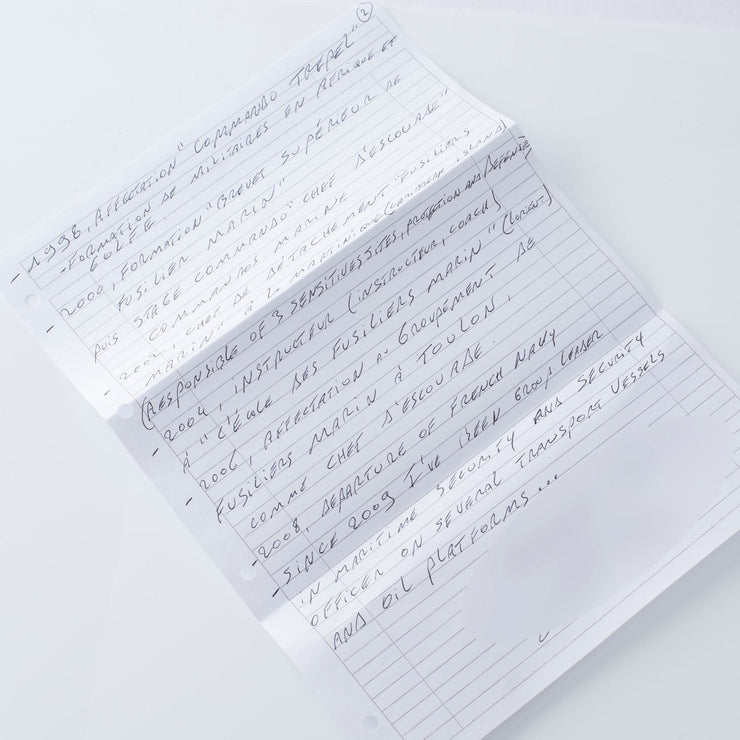 2
- 1998, AFFECTATION "COMMANDO TREPEL"
- FORMATION DE MILITAIRES EN AFRIQUE ET
GOLFE.
- 2000, FORMATION "BREVET SUPÉRIEUR DE
FUSILIER MARIN"
PUIS STAGE COMMANDO "CHEF D'ESCOUADE"
COMMANDOS MARINE
- 2002, CHEF DE DÉTACHEMENT "FUSILIERS
MARINS" À LA MARTINIQUE (CARIBBEAN ISLAND)
(RESPONSIBLE OF 3 SENSITIVES SITES, PROTECTION AND DEFENSE)
- 2004, INSTRUCTEUR (INSTRUCTEUR, COACH)
À "L'ÉCOLE DES FUSILIERS MARIN" (LORIENT)
- 2006, AFFECTATION AU GROUPEMENT DE
FUSILIERS MARIN À TOULON,
COMME CHEF D'ESCOUADE.
- 2008, DEPARTURE OF FRENCH NAVY
- SINCE 2009 I'VE BEEN GROUP LEADER
IN MARITIME SECURITY AND SECURITY
OFFICER ON SEVERAL TRANSPORT VESSELS
AND OIL PLATFORMS...